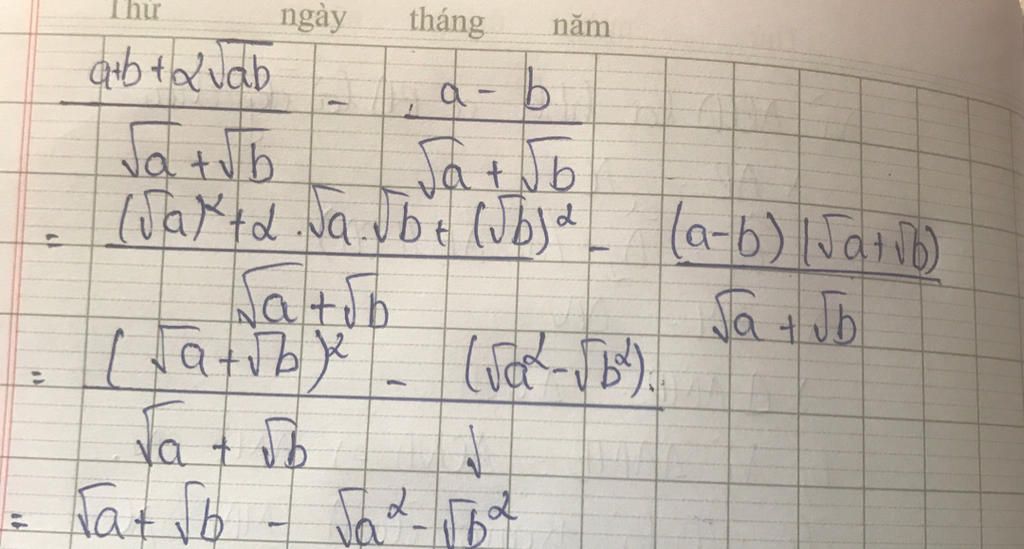 Thứ ngày tháng năm
a+b+2√ab - a - b
√a + √b √a + √b
= (√a)² + 2.√a.√b + (√b)² - (a-b)(√a+√b)
√a + √b √a + √b
= (√a+√b)² - (√a²-√b²).
√a + √b √
= √a + √b - √a² - √b²